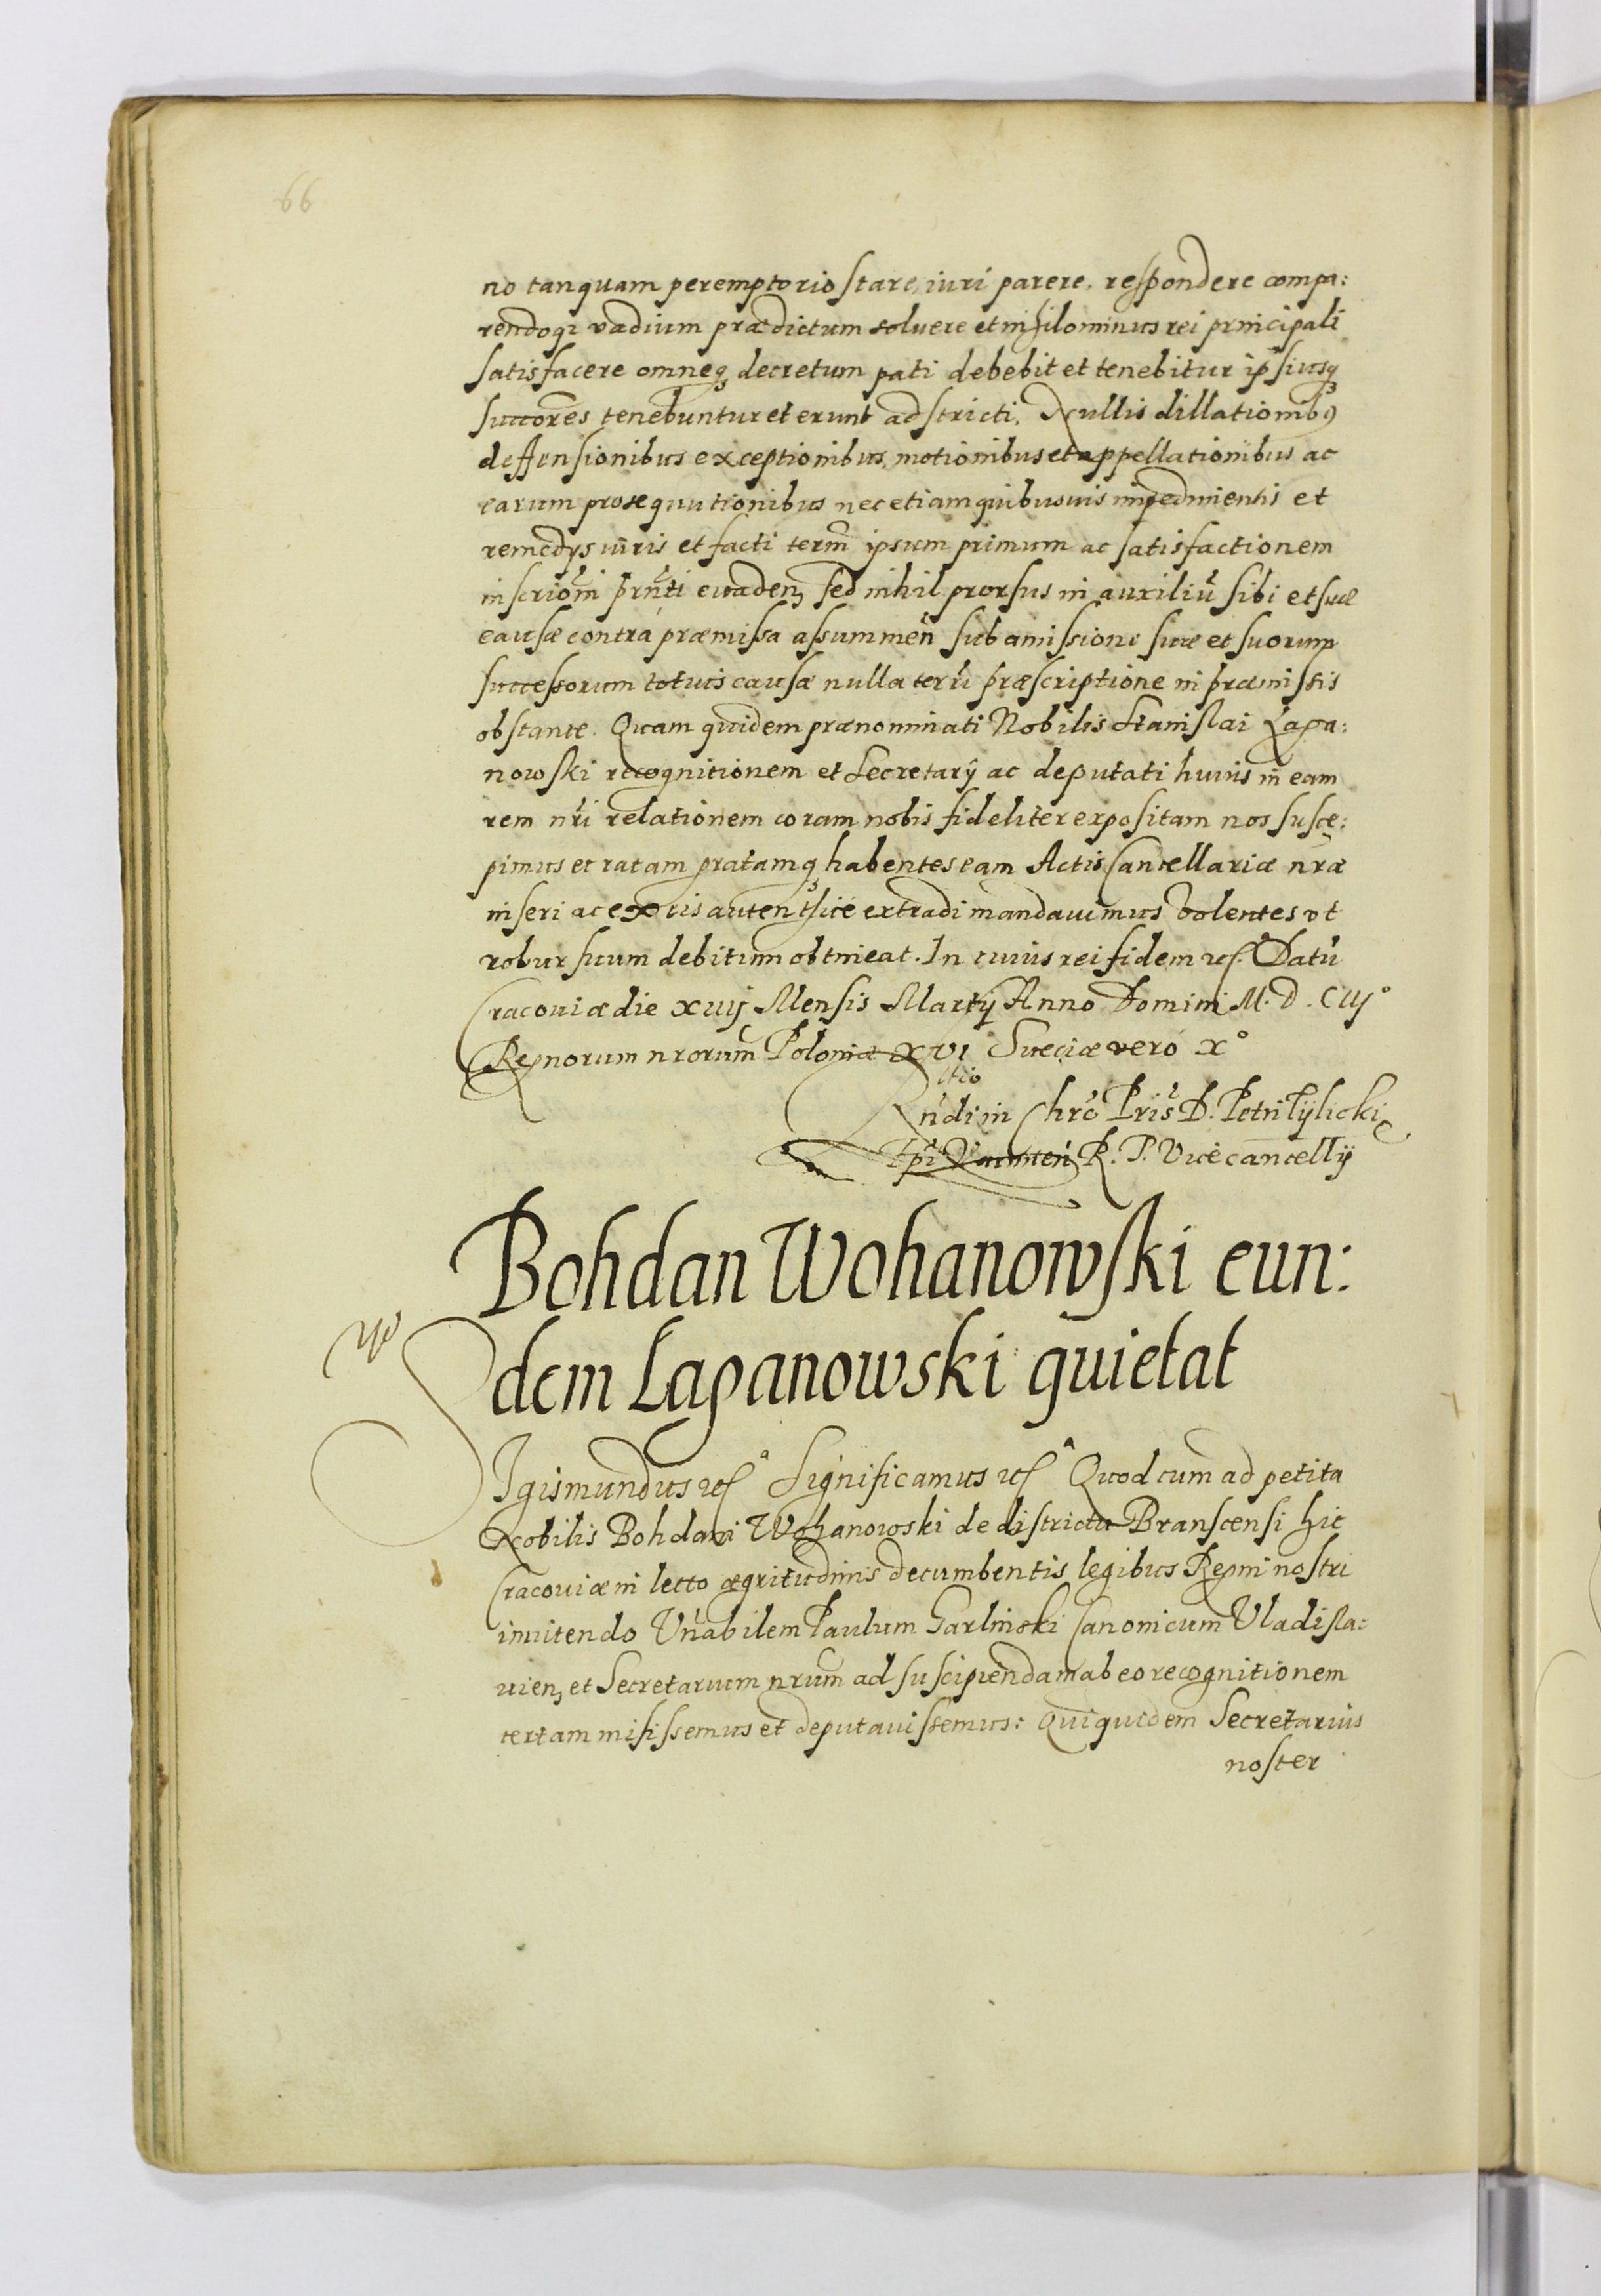 66
no tanquam peremptorio stare, iuri parere, respondere compa:
rendoq3 vadium prædictum soluere et nihilominus rei principali
satisfacere omneq3 decretum pati debebit et tenebitur ipsiusq3
succores tenebuntur et erunt adstricti. Nullis dillationib9
deffensionibus exceptionibus, motionibus et appellationibus ac
earum prosequutionibus nec etiam quibusuis impedimentis et
remedys iuris et facti term ipsum primum ac satisfactionem
inscriōni prn̄ti euaden3 sed nihil prorsus in auxiliū sibi et suæ
causæ contra præmissa assummen̄ sub amissione suæ et suorum
successorum totius causæ nulla terrū præscriptione in præmissis
obstante. Quam quidem prænominati Nobilis Stanislai Łapa:
nowski recognitionem et Secretarÿ ac deputati huius in eam
rem nri relationem coram nobis fideliter expositam nos susce:
pimus et ratam gratamq3 habentes eam Actis Cancellariæ nræ
inseri ac ex iis autenthice extradi mandauimus volentes vt
robur suum debitum obtineat. In cuius rei fidem etc. Datū
Cracouiæ die xvij Mensis Martÿ Anno Domini M. D. CIIJ°
Regnorum nrorum Poloniæ XVI Sueciæ vero X°
Rltio
Rn̄di in Chrō Pris D. Petri Tÿlicki
Epi Varmien̄ R. P. Vicecancellÿ
Bohdan Wohanowski eun:
dem Łapanowski quietat
SIgismundus etc° Significamus etc° Quod cum ad petita
Nobilis Bohdani Wohanowski de districtu Branscensi hic
Cracouiæ in lecto ægritudinis decumbentis legibus Regni nostri
innitendo Vn̄abilem Paulum Garlinski Canonicum Vladisla:
uien3 et Secretarium nrum ad suscipiendam ab eo recognitionem
certam misissemus et deputauissemus: Qui quidem Secretarius
noster